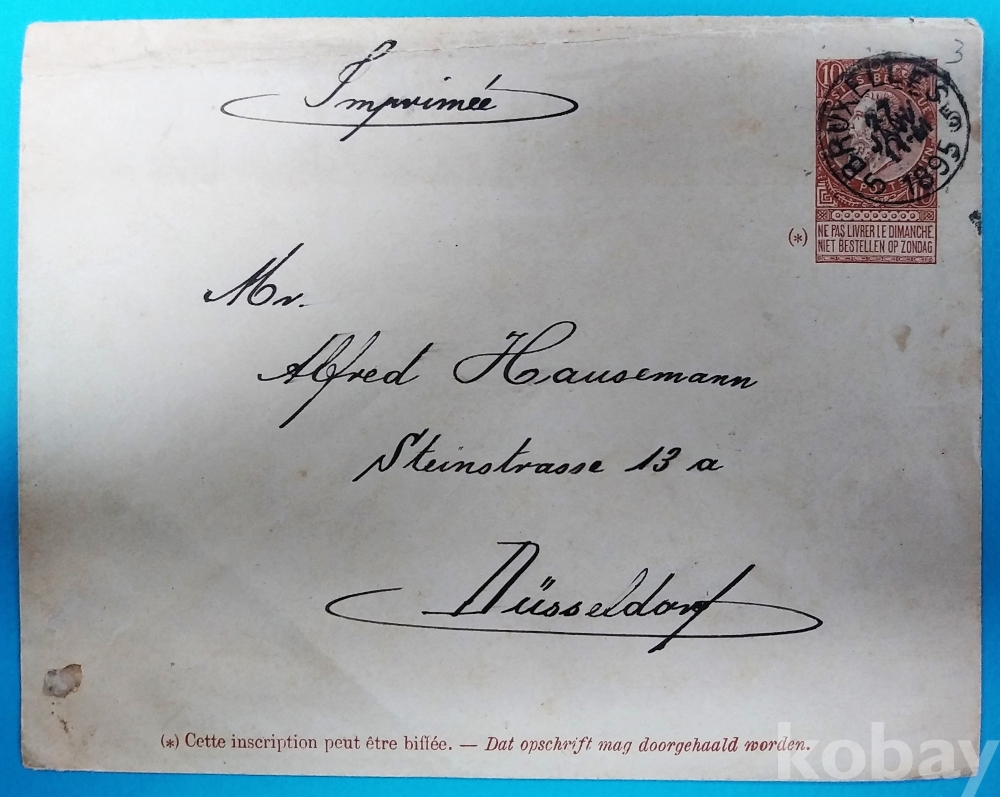 Imprimée
3
10
BRUXELLES
1895
(*) NE PAS LIVRER LE DIMANCHE
NIET BESTELLEN OP ZONDAG
Mr.
Alfred Hausemann
Steinstrasse 13 a
Düsseldorf
(*) Cette inscription peut être biffée. — Dat opschrift mag doorgehaald worden.
kobay